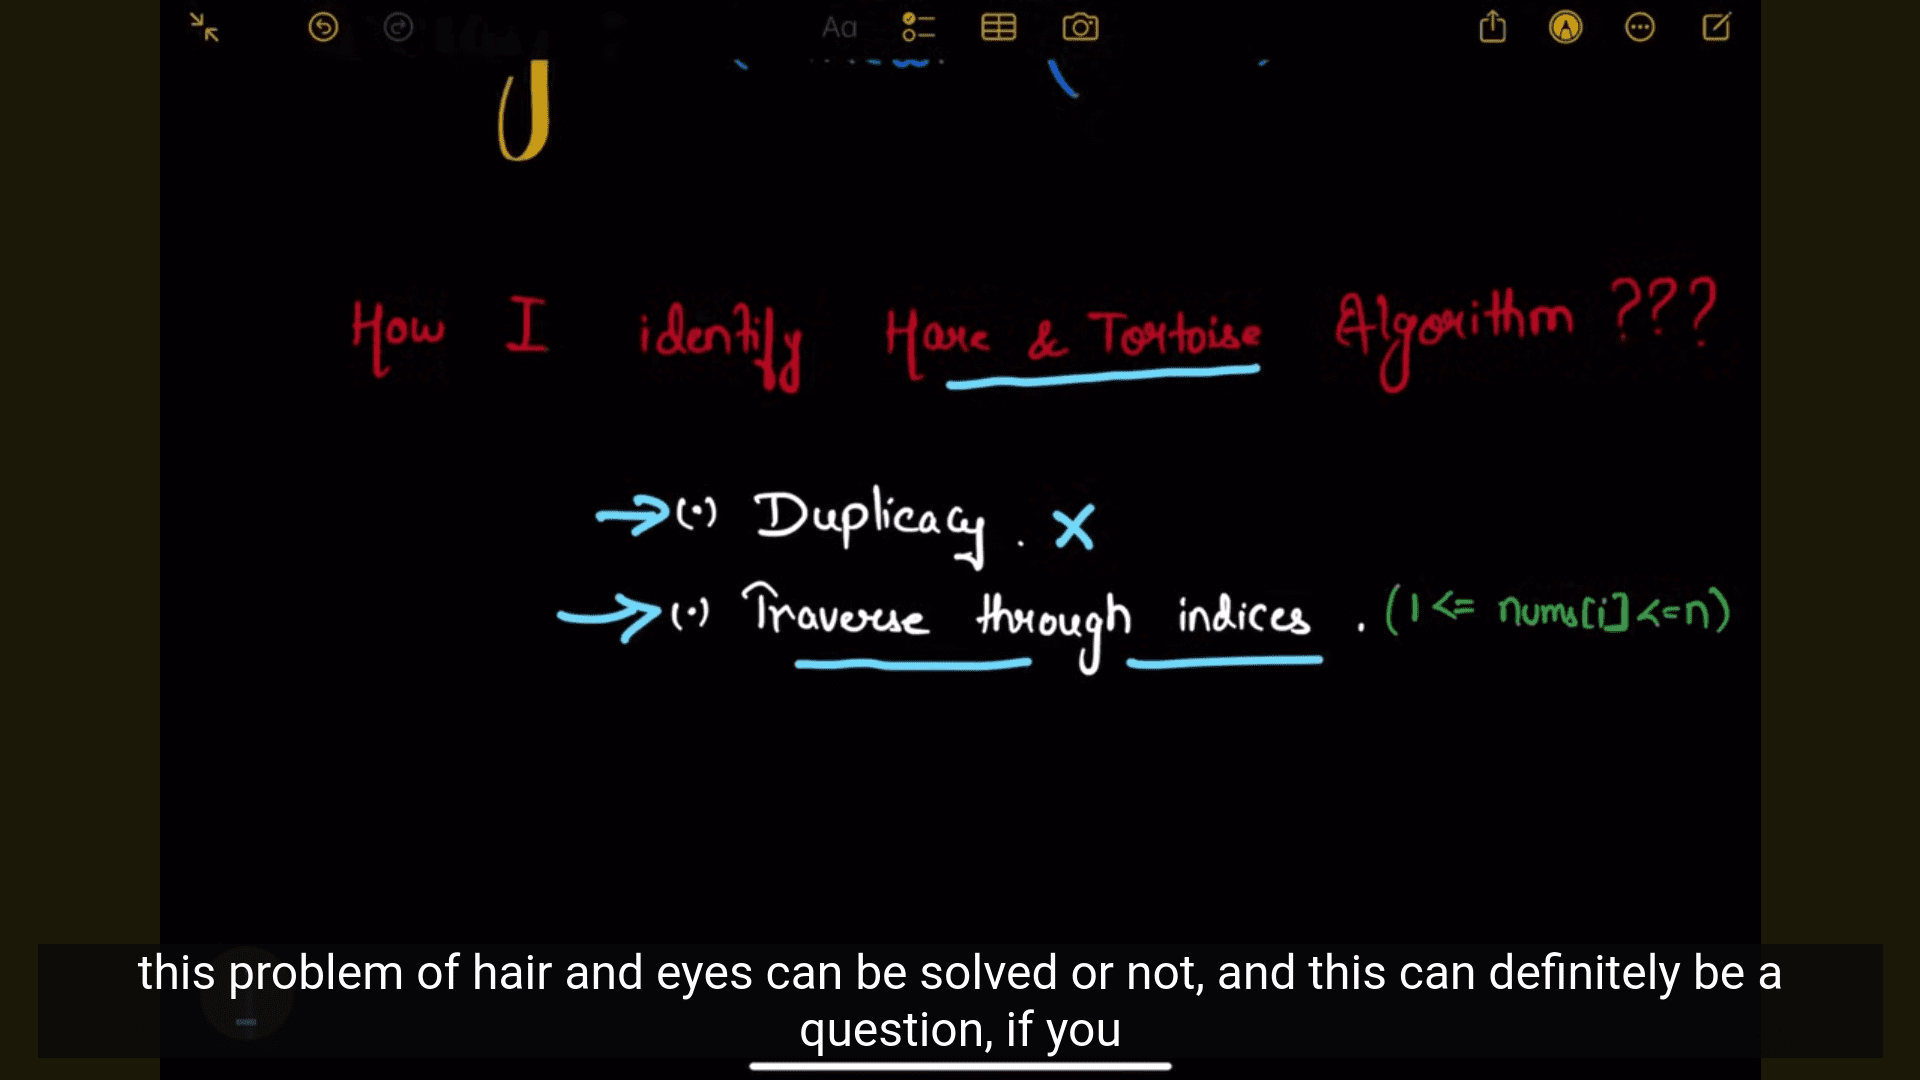 Aa
How I identify Hare & Tortoise Algorithm ???
→(·) Duplicacy . X
→(·) Traverse through indices . (1 <= nums[i] <= n)
this problem of hair and eyes can be solved or not, and this can definitely be a
question, if you